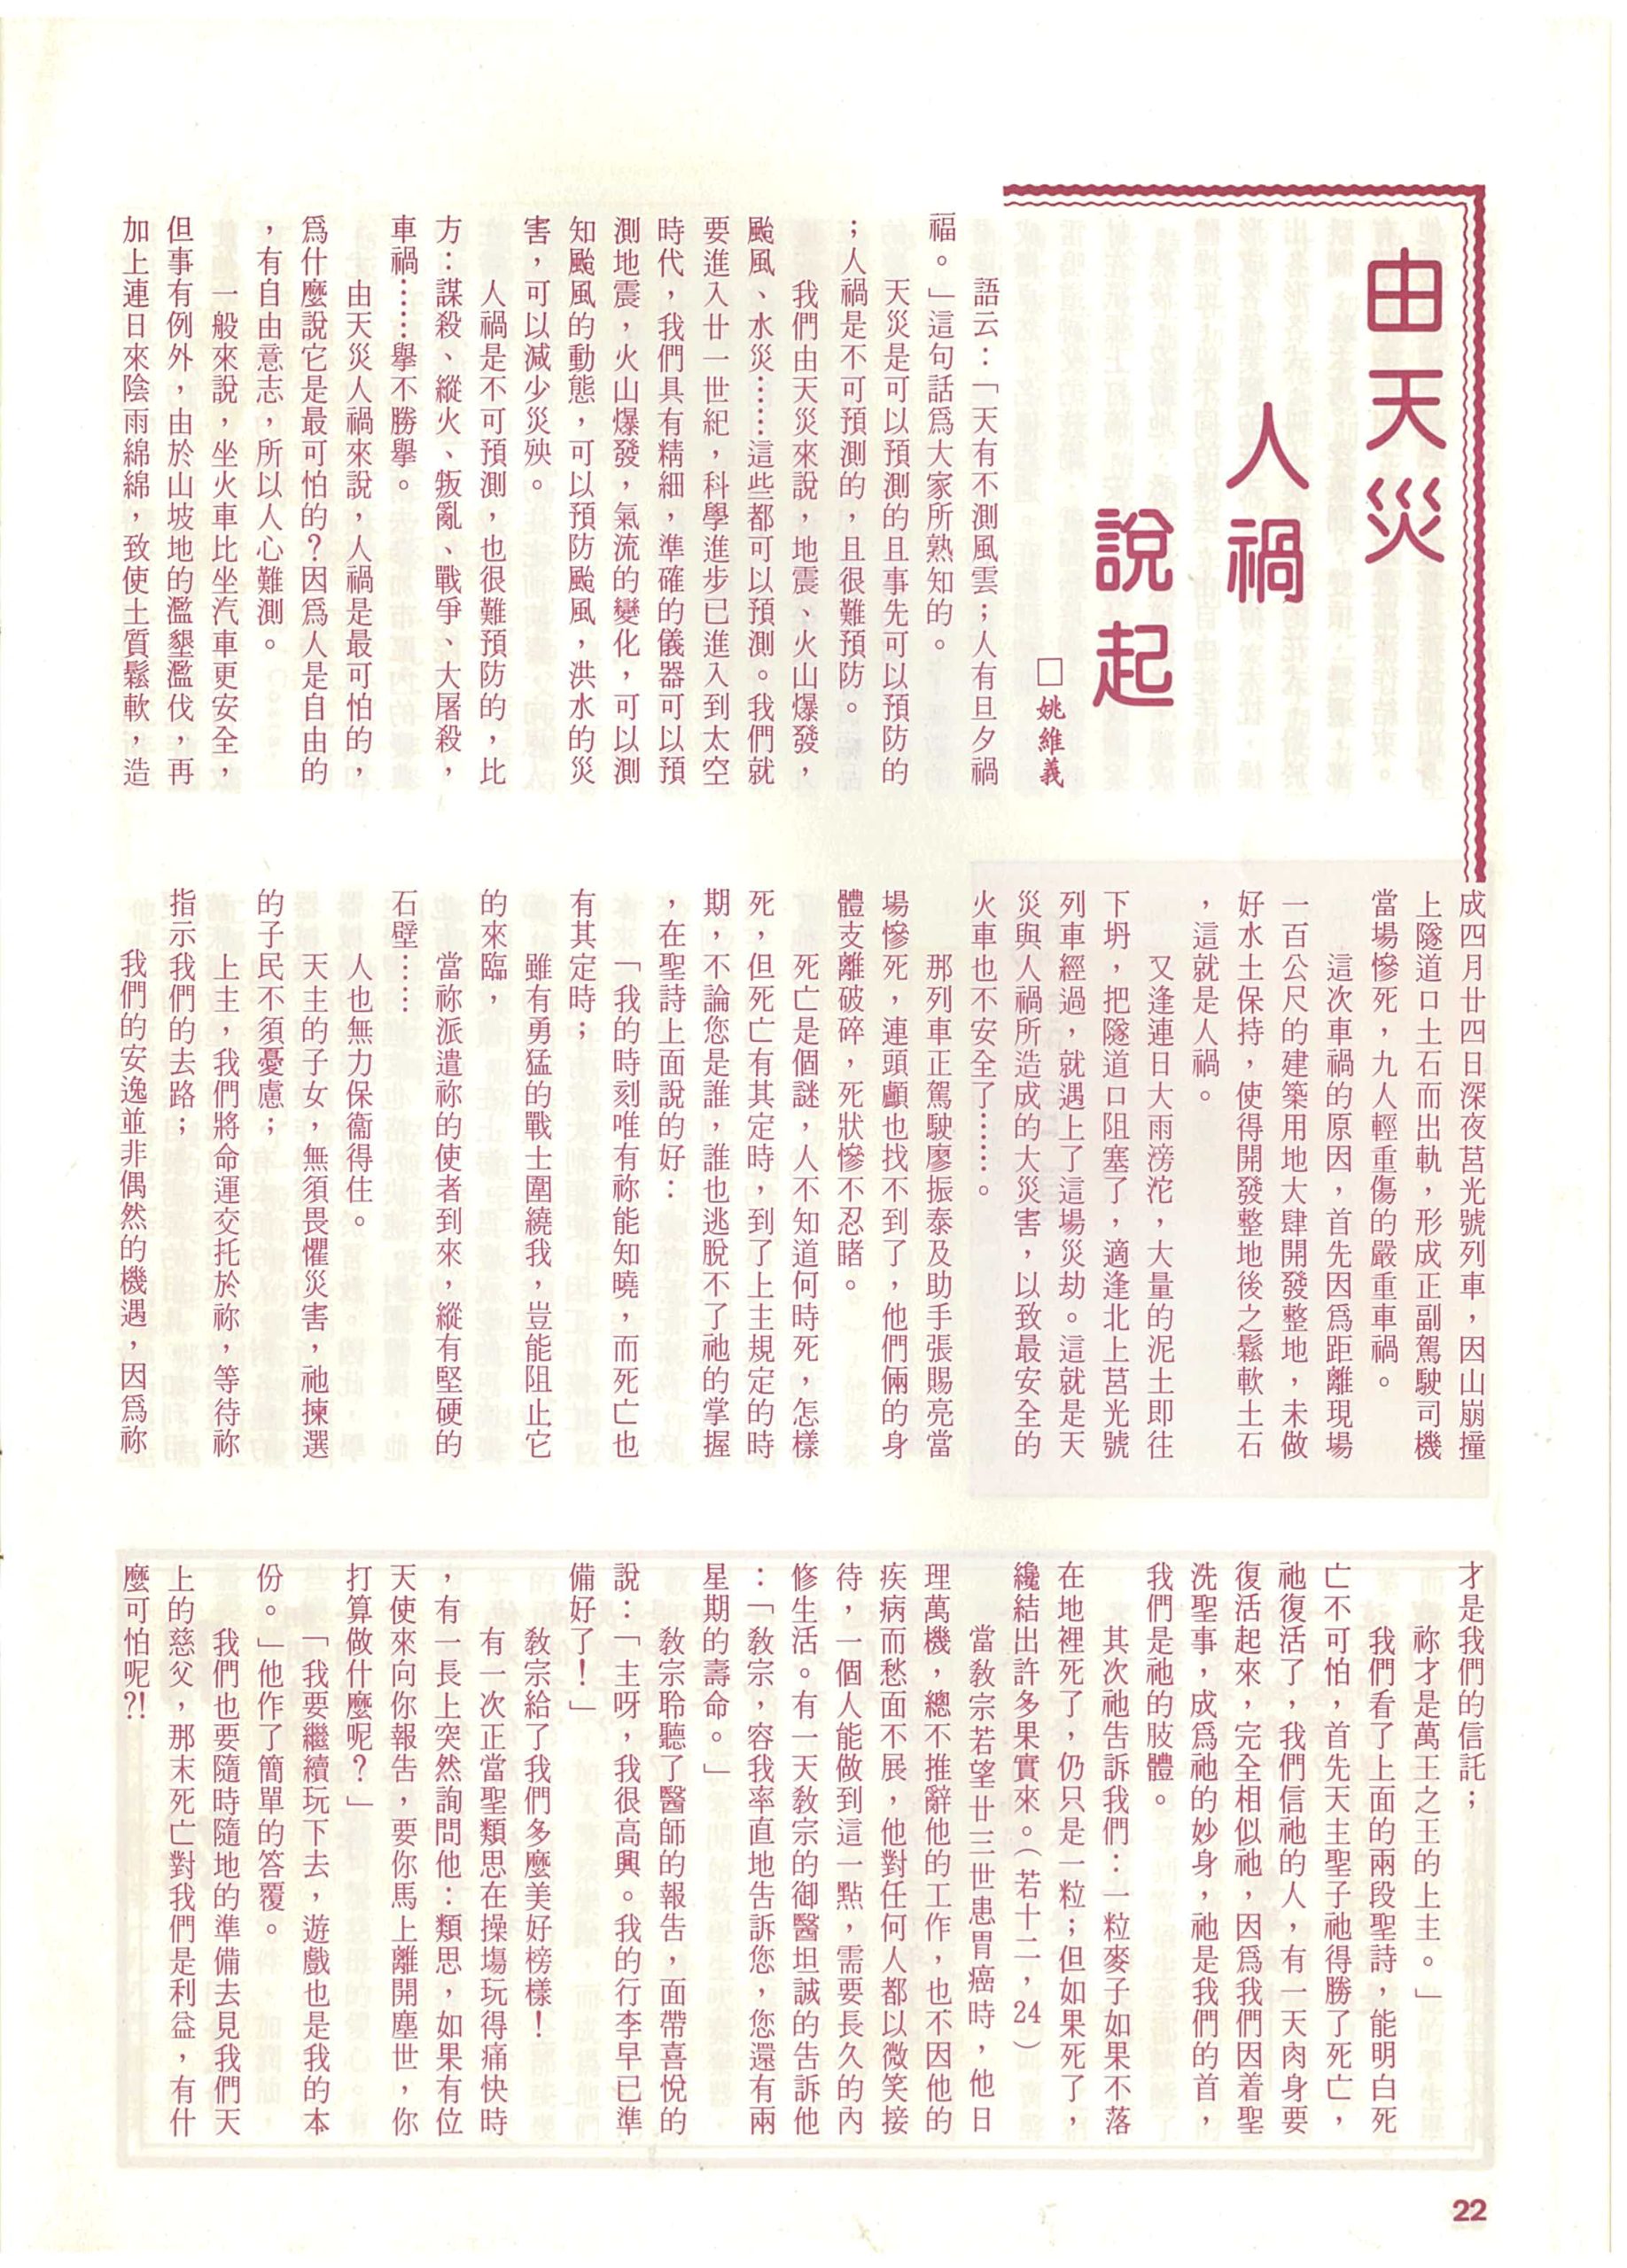 由天災
人禍
說起
□姚維義
語云：「天有不測風雲；人有旦夕禍
福。」這句話爲大家所熟知的。
天災是可以預測的且事先可以預防的
；人禍是不可預測的，且很難預防。
我們由天災來說，地震、火山爆發，
颱風、水災……這些都可以預測。我們就
要進入廿一世紀，科學進步已進入到太空
時代，我們具有精細，準確的儀器可以預
測地震，火山爆發，氣流的變化，可以測
知颱風的動態，可以預防颱風，洪水的災
害，可以減少災殃。
人禍是不可預測，也很難預防的，比
方：謀殺、縱火、叛亂、戰爭、大屠殺，
車禍……擧不勝擧。
由天災人禍來說，人禍是最可怕的，
爲什麼說它是最可怕的？因爲人是自由的
，有自由意志，所以人心難測。
一般來說，坐火車比坐汽車更安全，
但事有例外，由於山坡地的濫墾濫伐，再
加上連日來陰雨綿綿，致使土質鬆軟，造
成四月廿四日深夜莒光號列車，因山崩撞
上隧道口土石而出軌，形成正副駕駛司機
當場慘死，九人輕重傷的嚴重車禍。
這次車禍的原因，首先因爲距離現場
一百公尺的建築用地大肆開發整地，未做
好水土保持，使得開發整地後之鬆軟土石
，這就是人禍。
又逢連日大雨滂沱，大量的泥土即往
下坍，把隧道口阻塞了，適逢北上莒光號
列車經過，就遇上了這場災劫。這就是天
災與人禍所造成的大災害，以致最安全的
火車也不安全了……。
那列車正駕駛廖振泰及助手張賜亮當
場慘死，連頭顱也找不到了，他們倆的身
體支離破碎，死狀慘不忍睹。
死亡是個謎，人不知道何時死，怎樣
死，但死亡有其定時，到了上主規定的時
期，不論您是誰，誰也逃脫不了祂的掌握
，在聖詩上面說的好：
「我的時刻唯有祢能知曉，而死亡也
有其定時；
雖有勇猛的戰士圍繞我，豈能阻止它
的來臨，
當祢派遣祢的使者到來，縱有堅硬的
石壁……
人也無力保衞得住。
天主的子女，無須畏懼災害，祂揀選
的子民不須憂慮；
上主，我們將命運交托於祢，等待祢
指示我們的去路；
我們的安逸並非偶然的機遇，因爲祢
才是我們的信託；
祢才是萬王之王的上主。」
我們看了上面的兩段聖詩，能明白死
亡不可怕，首先天主聖子祂得勝了死亡，
祂復活了，我們信祂的人，有一天肉身要
復活起來，完全相似祂，因爲我們因着聖
洗聖事，成爲祂的妙身，祂是我們的首，
我們是祂的肢體。
其次祂告訴我們：一粒麥子如果不落
在地裡死了，仍只是一粒；但如果死了，
纔結出許多果實來。（若十二，24）
當教宗若望廿三世患胃癌時，他日
理萬機，總不推辭他的工作，也不因他的
疾病而愁面不展，他對任何人都以微笑接
待，一個人能做到這一點，需要長久的內
修生活。有一天教宗的御醫坦誠的告訴他
：「教宗，容我率直地告訴您，您還有兩
星期的壽命。」
教宗聆聽了醫師的報告，面帶喜悅的
說：「主呀，我很高興。我的行李早已準
備好了！」
教宗給了我們多麼美好榜樣！
有一次正當聖類思在操塲玩得痛快時
，有一長上突然詢問他：類思，如果有位
天使來向你報告，要你馬上離開塵世，你
打算做什麼呢？」
「我要繼續玩下去，遊戲也是我的本
份。」他作了簡單的答覆。
我們也要隨時隨地的準備去見我們天
上的慈父，那末死亡對我們是利益，有什
麼可怕呢?!
22